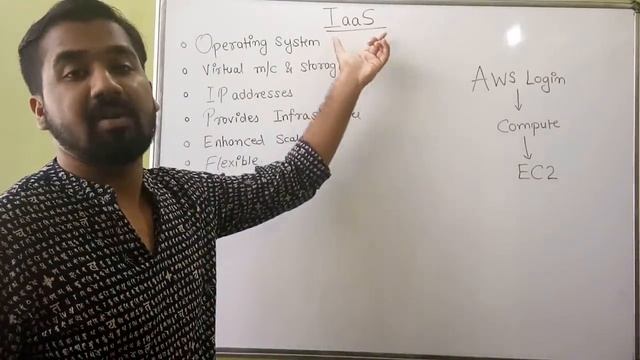 IaaS
Operating System
Virtual m/c & Storag
IP addresses
Provides Infras
Enhanced Scal
Flexible
AWS Login
Compute
EC2